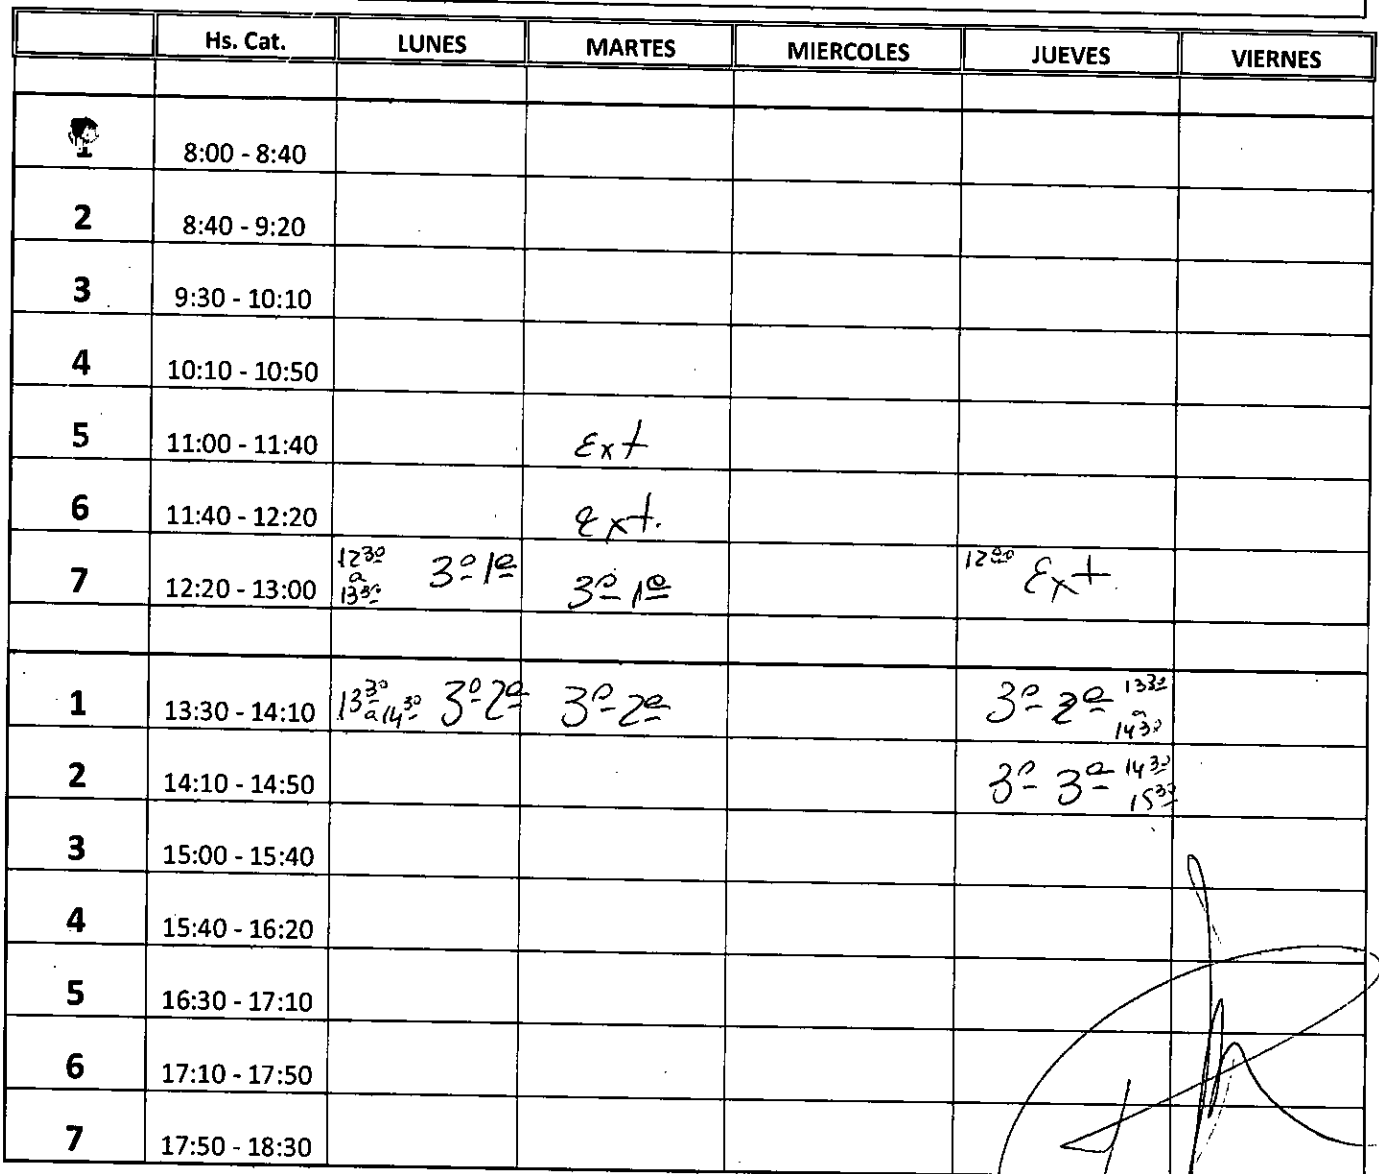 Hs. Cat. LUNES MARTES MIERCOLES JUEVES VIERNES
8:00 - 8:40
2 8:40 - 9:20
3 9:30 - 10:10
4 10:10 - 10:50
5 11:00 - 11:40 Ext
6 11:40 - 12:20 Ext.
7 12:20 - 13:00 12³⁰ a 13³⁰ 3º 1ª 3º 1ª Ext.
1 13:30 - 14:10 13³⁰ a 14³⁰ 3º 2ª 3º 2ª 3º 2ª 13³⁰ a 14³⁰
2 14:10 - 14:50 3º 3ª 14³⁰ 15³⁰
3 15:00 - 15:40
4 15:40 - 16:20
5 16:30 - 17:10
6 17:10 - 17:50
7 17:50 - 18:30